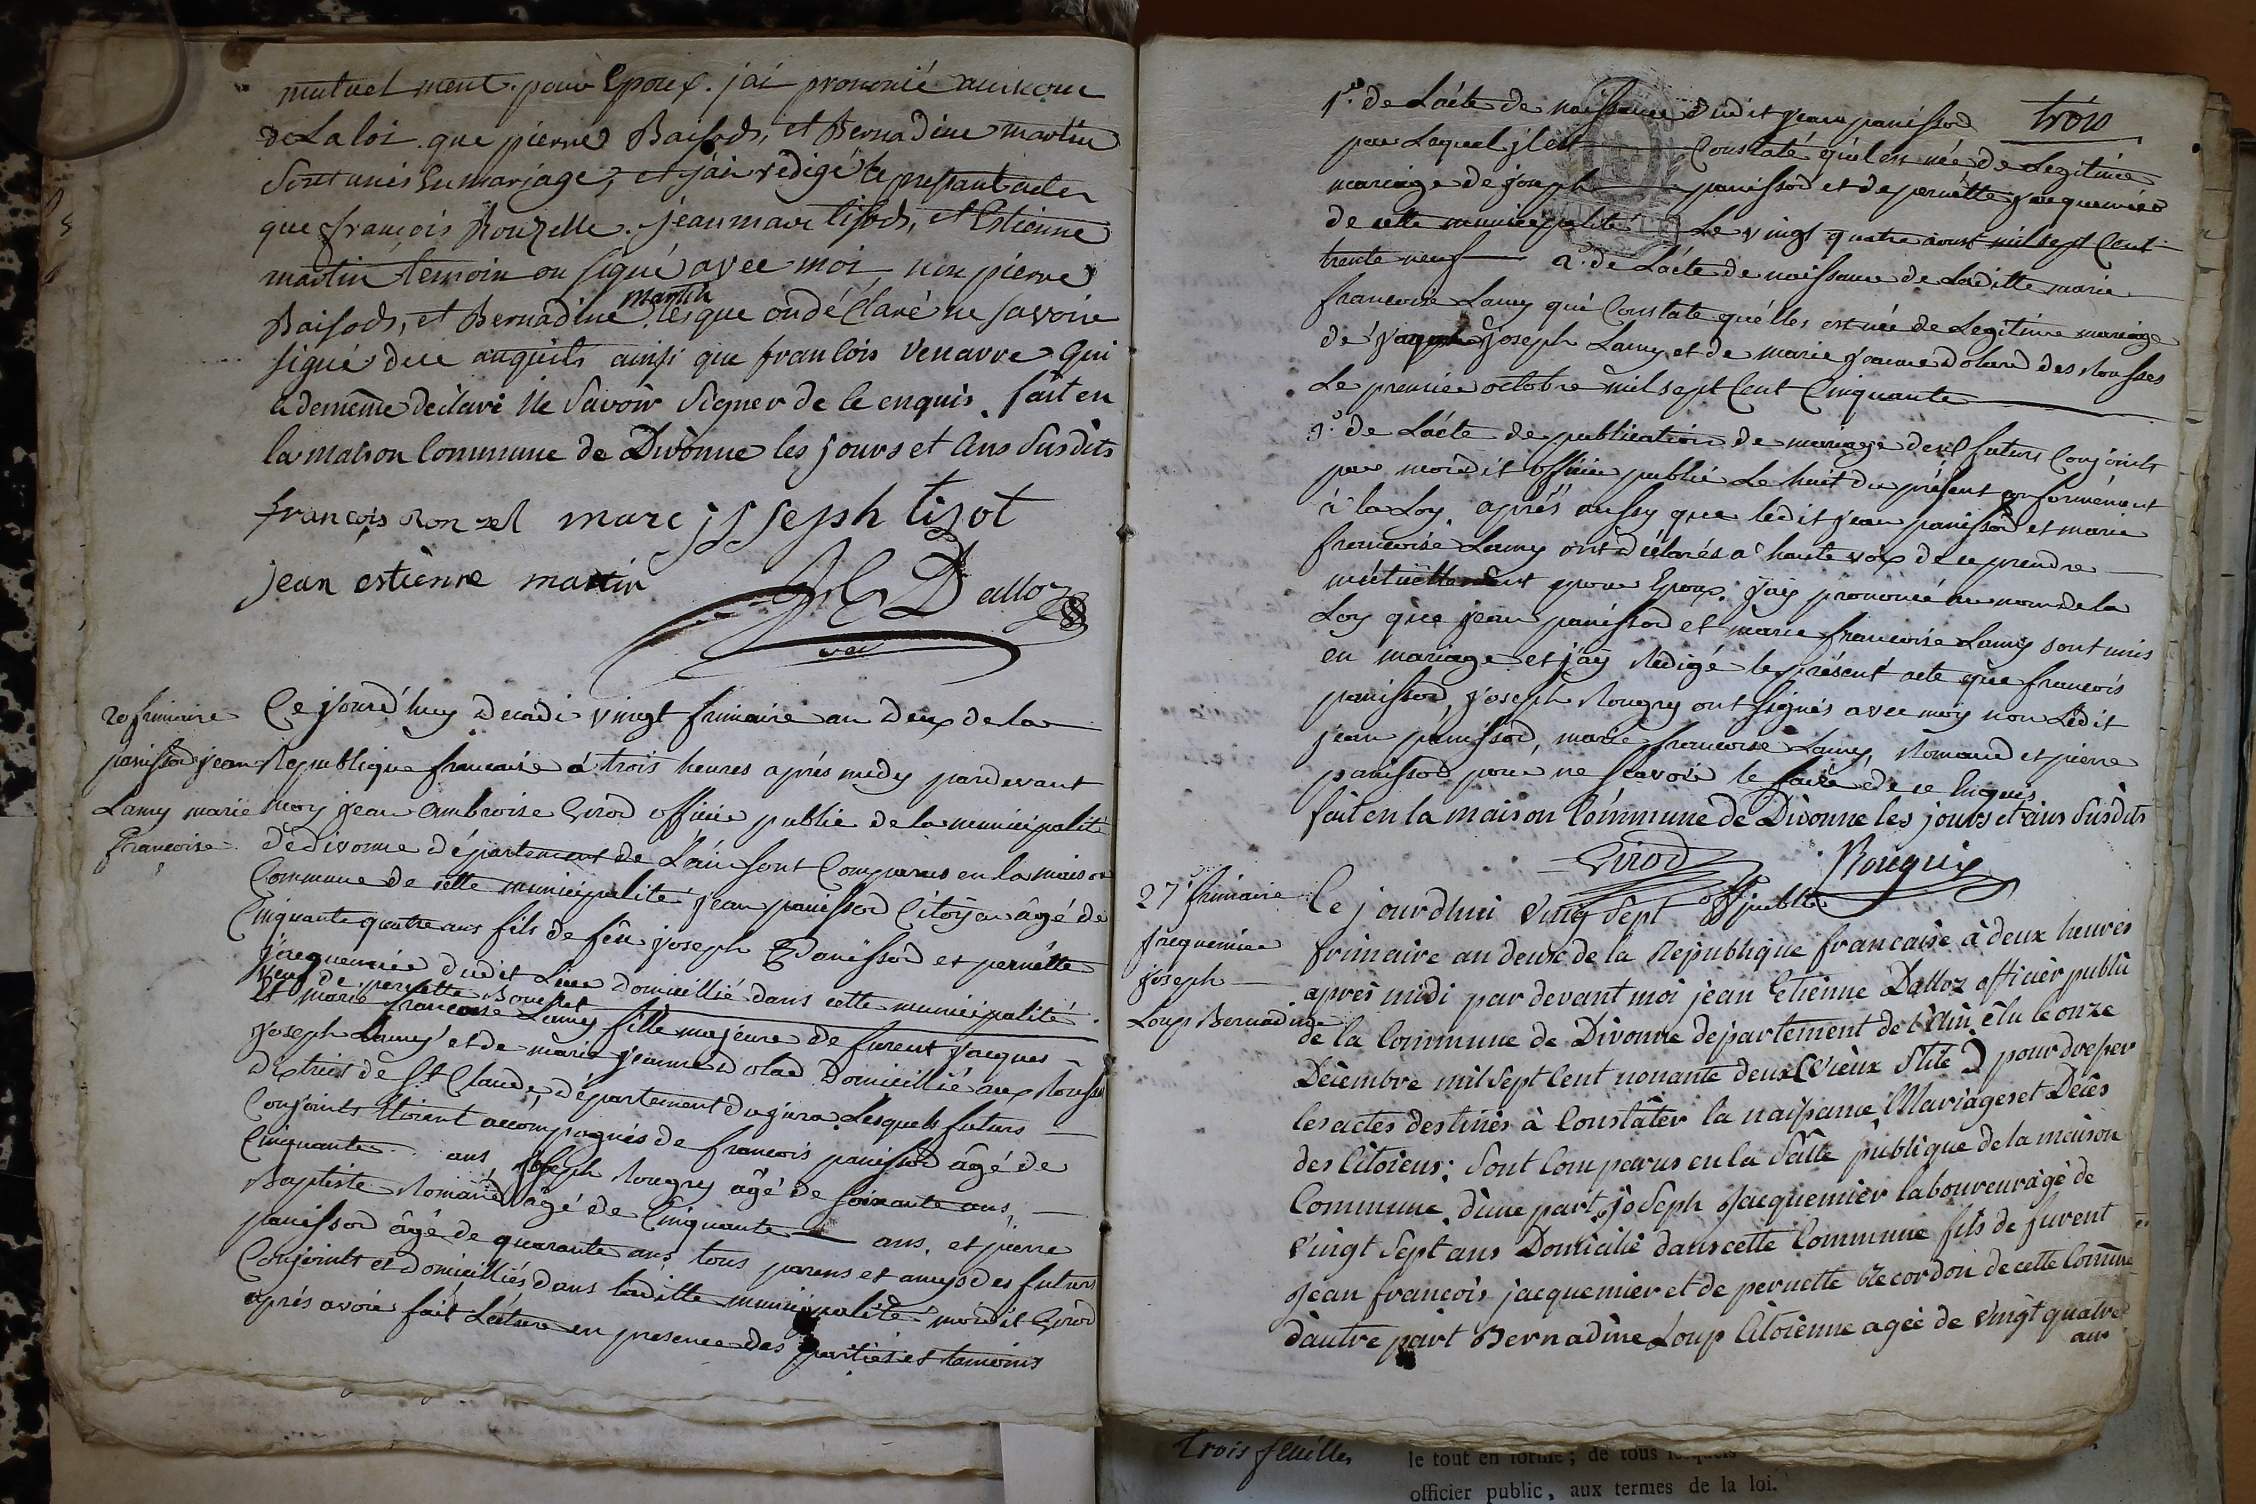 mutuel ment. pour Epoux. j'ai prononcé au nom
de La loi que pierre Baisod, et Bernadine martin
Sont unis En mariage, et j'ai rédigé le present acte
que françois Ronzelle. jean marc tisod, et Estienne
martin temoin on signé avec moi non pierre
Baisod, et Bernadine martin lesque on déClaré ne savoire
signé de ce enquits ainsi que franCois Venarre Qui
a demême déclaré Ne Savoir Signer de le enquis. fait en
la maison Commune de Divonne les jours et Ans Susdits
francois Ronzel marc joseph tizot
jean estienne martin JE Dalloz
20 frimaire
panissod jean
Lamy marie
francoise
Ce jourd'huy Decadi vingt frimaire an Deux de la
Republique francaise à trois heures aprés midy pardevant
moy jean Ambroise Girod officié public de la municipalité
de divonne département de L'ain sont Comparus en la maison
Commune de cette municipalité jean panissod Citoyen âgé de
Cinquante quatre ans fils de feu joseph Panissod et pernette
jacquemiée dudit Lieu domicillié dans cette municipalité.
veuf de pernette Bouchet
Et marie francoise Lamy fille majeure de furent jacques
joseph Lamy et de marie jeanne Dolard Domicillié aux Rousses
District de St Claude, département du jura. Lesquels futurs
Conjoints Etoient accompagnés de francois panissod âgé de
Cinquante ans joseph Rougny âgé de soixante ans,
Baptiste Romand âgé de Cinquante ans, et pierre
panissod âgé de quarante ans tous parens et amys des futurs
Conjoints et domicilliés dans laditte municipalité moidit Girod
aprés avoir fait Lecture en presence des parties et temoins
trois
1.° de L'acte de naissance dudit jean panissod
par Lequel jl est Constaté qu'il est née de Legitime
mariage de joseph panissod et de pernette jacquemiée
de cette municipalité Le vingt quatre aoust mil sept Cent
trente neuf 2.° de L'acte de naissance de Laditte marie
francoise Lamy qui Constate quélles est née de Legitime mariage
de jacques joseph Lamy et de marie jeanne Dolard des Rousses
Le premier octobre mil sept Cent Cinquante
3.° de L'acte de publication de mariage desd futurs Conjoints
par moidit officié publié Le huit du présent conformément
à la Loy. aprés aussy que ledit jean panissod et marie
francoise Lamy ont déclarés a haute voix de ce prendre
mutuellement pour Epoux. j'ay prononcé au nom de la
Loy que jean panissod et marie francoise Lamy sont unis
en mariage et j'ay Redigé le présent acte que francois
panissod, joseph Rougny ont signés avec moy non Ledit
jean panissod, marie francoise Lamy, Romand et pierre
panissod pour ne scavoir le faire de ce Enquis
fait en la maison Commune de Divonne les jours et ans Susdits
Girod Rougny
off publle
27 frimaire
jacquemier
joseph
Loup Bernadine
Ce jourdhui Vingt Sept
frimaire an deux de la République francaise à deux heures
après midi par devant moi jean Etienne Dalloz officier public
de la Commune de Divonne departement de l'Ain élu le onze
Décembre mil Sept Cent nonante deux (vieux Stile) pour dresser
les actes destinés à Constater la naissance Mariages et Décès
des Citoiens; Sont Comparus en la Salle publique de la maison
Commune, d'une part joseph Jacquemier laboureur âgé de
Vingt Sept ans Domicilié dans cette Commune fils de furent
Jean françois jacquemier et de pernette Recordon de cette Comune
d'autre part Bernadine Loup Citoienne agée de Vingt quatre
ans
trois feuilles
le tout en forme; de tous lesquels
officier public, aux termes de la loi.